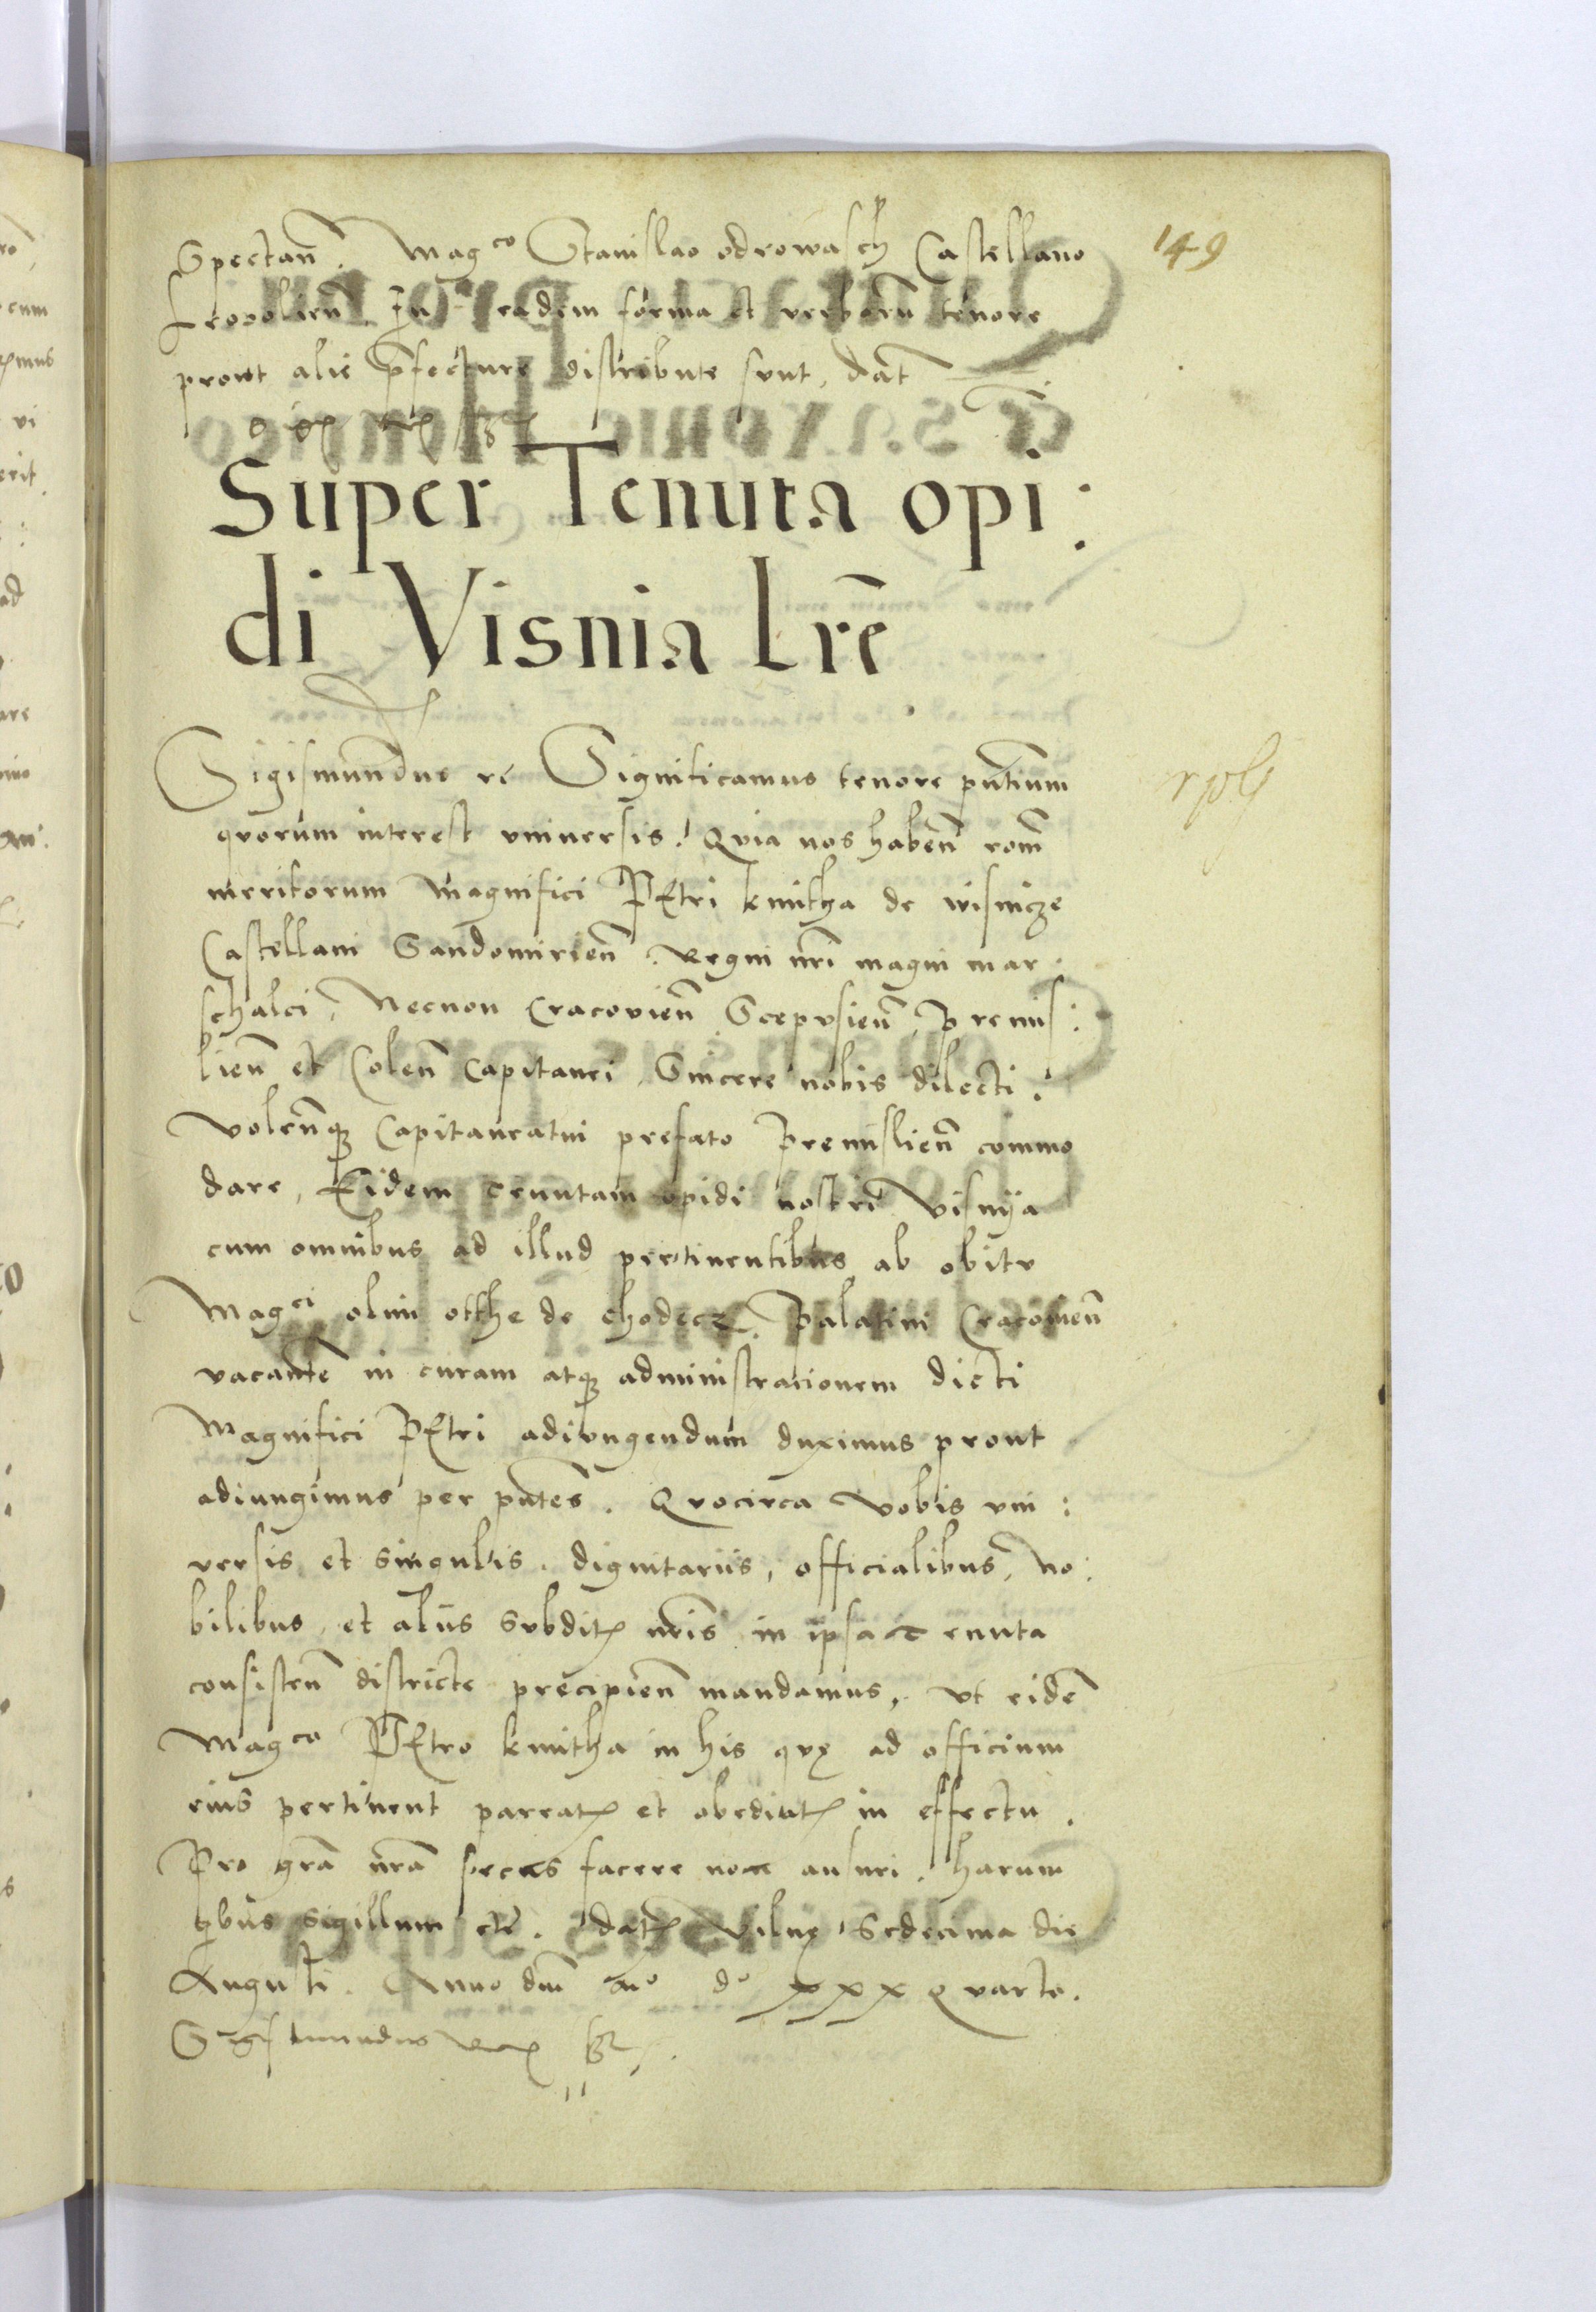 149
Spectan̄. Magco Stanislao odrowasch Castellano
Leopolien̄. In eadem forma et verborū tenore
prout alie p̄fecture distribute sunt, dat̄
Super Tenuta opi:
di Visnia Lrē
Sigismundus rē Significamus tenore pn̄tium
quorum interest vniuersis! Quia nos haben̄ rom̄
meritorum Magnifici PEtri kmitha de wisnicze
Castellani Sandomirien̄. Regni nrī magni mar:
schalci, Necnon Cracovien̄ Scepusien̄, Premis:
lien̄ et Colen̄ Capitanei, Sincere nobis dilecti.
Volen̄qz Capitaneatui prefato Premislien̄ commo
dare, Eidem tenutam opidi nostri Visnija
cum omnibus ad illud pertinentibus ab obitu
Magci olim otthe de Chodecz. Palatini Cracovien̄
vacantē in curam atqz administracionem dicti
Magnifici PEtri adiungendum duximus prout
adiungimus per pn̄tes. Quocirca Vobis vni:
versis et singulis. dignitariis, officialibus, No:
bilibus, et aliis Subditꝭ nrīs in ipsa tenuta
consisten̄ districte precipien̄ mandamus, vt eidē
Magco PEtro kmitha in his quę ad officium
eius pertinent pareatꝭ et obediatꝭ in effectu.
Pro grā nrā secus facere non ausuri. harum
qbus Sigillum etc̄. datꝭ Vilnę Sedecima die
Augusti. Anno dnī Mo do xxx quarto.
Sigismundus Rex